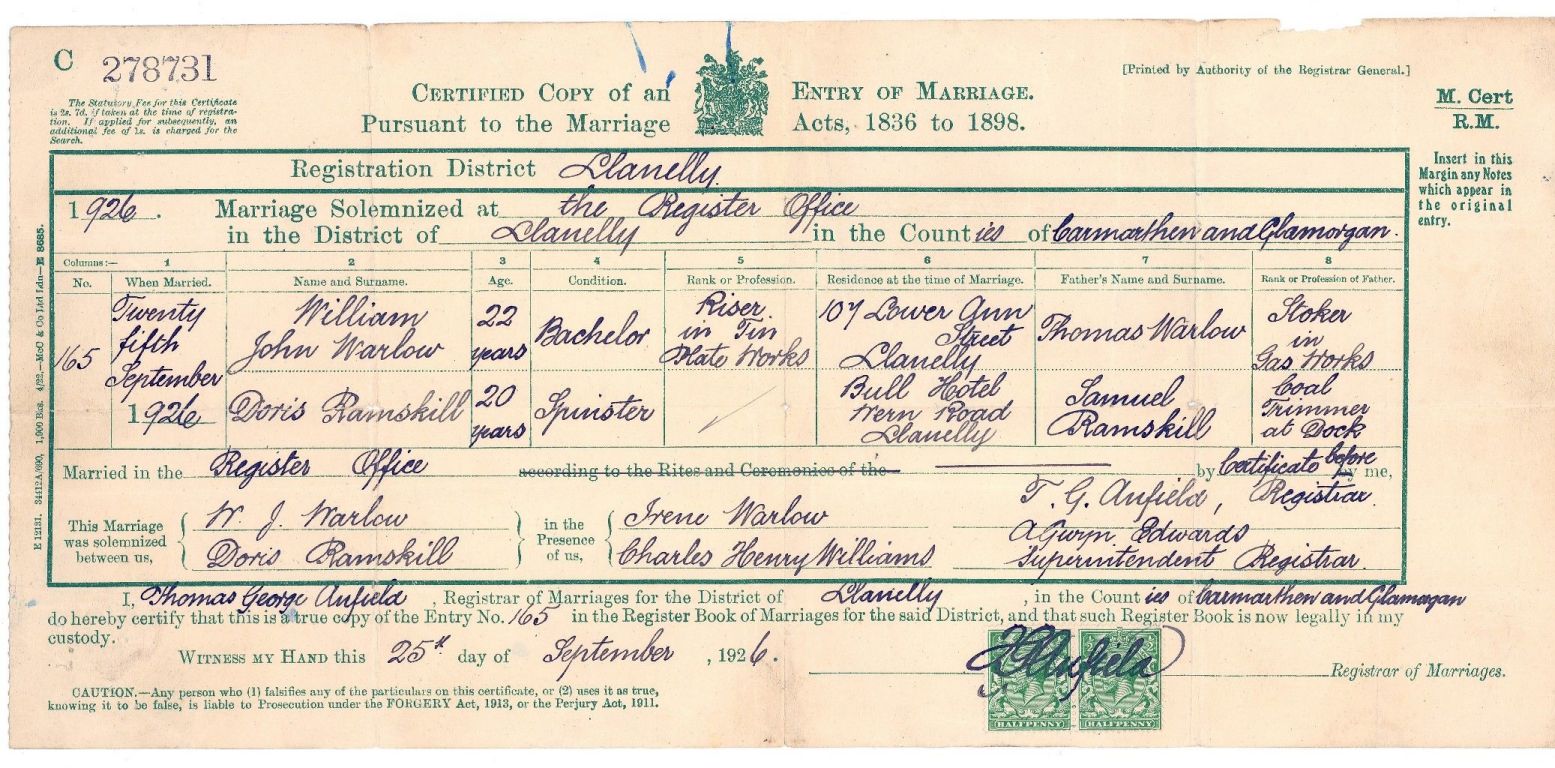 C 278731
The Statutory Fee for this Certificate
is 2s. 7d. if taken at the time of registra-
tion. If applied for subsequently, an
additional fee of 1s. is charged for the
Search.
CERTIFIED COPY of an ENTRY OF MARRIAGE.
Pursuant to the Marriage Acts, 1836 to 1898.
[Printed by Authority of the Registrar General.]
M. Cert
R.M.
Insert in this
Margin any Notes
which appear in
the original
entry.
Registration District Llanelly
1926. Marriage Solemnized at the Register Office
in the District of Llanelly in the Counties of Carmarthen and Glamorgan.
Columns:— 1 2 3 4 5 6 7 8
No. When Married. Name and Surname. Age. Condition. Rank or Profession. Residence at the time of Marriage. Father's Name and Surname. Rank or Profession of Father.
165
Twenty
fifth
September
1926
William
John Warlow
22
years
Bachelor
Riser
in Tin
Plate Works
107 Lower Ann
Street
Llanelly
Thomas Warlow
Stoker
in
Gas Works
Doris Ramskill
20
years
Spinster
Bull Hotel
Wern Road
Llanelly
Samuel
Ramskill
Coal
Trimmer
at Dock
Married in the Register Office according to the Rites and Ceremonies of the by Certificate before by me,
This Marriage
was solemnized
between us,
W. J. Warlow
Doris Ramskill
in the
Presence
of us,
Irene Warlow
Charles Henry Williams
T. G. Anfield, Registrar
A Gwyn Edwards
Superintendent Registrar
I, Thomas George Anfield, Registrar of Marriages for the District of Llanelly, in the Counties of Carmarthen and Glamorgan
do hereby certify that this is a true copy of the Entry No. 165 in the Register Book of Marriages for the said District, and that such Register Book is now legally in my
custody.
WITNESS MY HAND this 25th day of September, 1926.
T G Anfield Registrar of Marriages.
HALFPENNY HALFPENNY
CAUTION.—Any person who (1) falsifies any of the particulars on this certificate, or (2) uses it as true,
knowing it to be false, is liable to Prosecution under the FORGERY Act, 1913, or the Perjury Act, 1911.